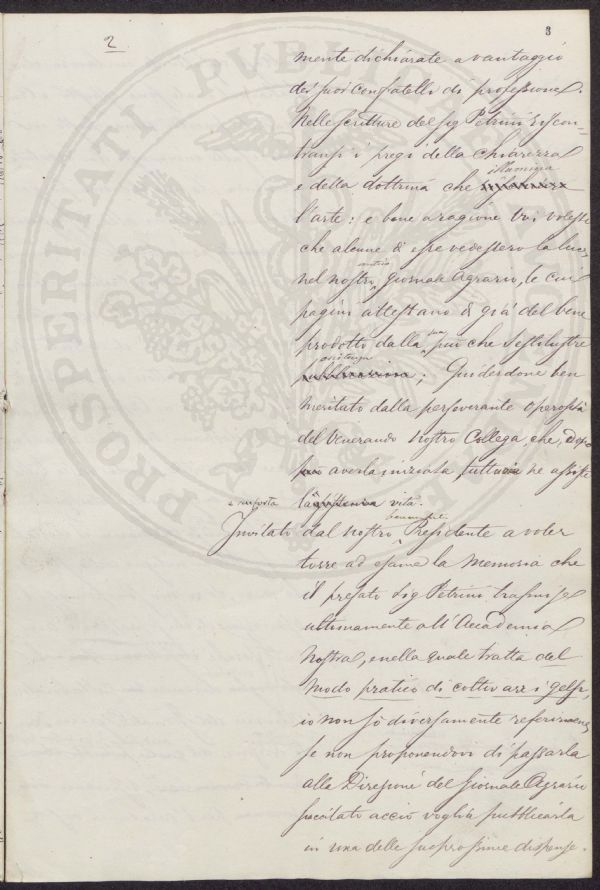 2
3
mente dichiarate a vantaggio
dei suoi confratelli di professione.
Nelle scritture del sig Petrini riscon=
transi i pregi della chiarezza
illumina
e della dottrina che
l'arte: e bene a ragione Voi voleste
che alcune di esse vedessero la luce,
nel nostro, giornale Agrario, le cui
pagini attestano di già del bene
prodotto dalla sua più che sestilustre
esistenza
pubblicazione; Guiderdone ben
meritato dalla perseverante operosità
del Venerando nostro Collega, che, dopo
averla iniziata, tuttavia ne assiste
la esistenza vita.
benemerito
Invitato dal nostro Presidente a voler
torre ad esame la Memoria che
il prefato Sig Petrini trasmise
ultimamente all'Accademia
Nostra, e nella quale tratta del
modo pratico di coltivare i gelsi,
io non so diversamente riferirvene,
se non proponendovi di passarla
alla Direzione del Giornale Agrario
succitato acciò voglia pubblicarla
in una delle sue prossime dispense.
PROSPERITATI PVBLICAE